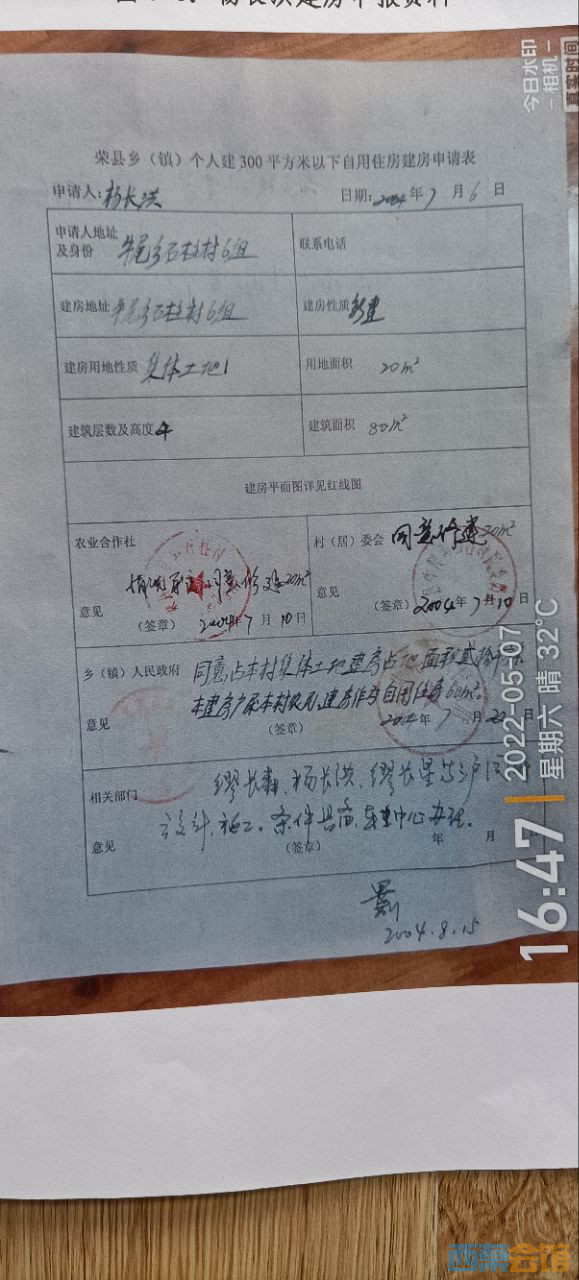 荣县乡（镇）个人建300平方米以下自用住房建房申请表
申请人：杨长洪 日期：2004年7月6日
申请人地址及身份 牛尾乡石柱村6组 联系电话
建房地址 牛尾乡石柱村6组 建房性质 新建
建房用地性质 集体土地 用地面积 20m²
建筑层数及高度 4 建筑面积 80m²
建房平面图详见红线图
农业合作社 村（居）委会 同意修建20m²
同意修建20m²
意见 意见
（签章） 2004年7月10日 （签章） 2004年7月10日
乡（镇）人民政府 同意占本村集体土地建房占地面积贰拾
本建房户系本村农户，建房作为自用住房60m²。
意见 （签章） 2004年7月22日
相关部门 缪长春、杨长洪、缪长星
设计、施工。条件具备，中心办理。
意见 （签章） 年 月
2004.8.15
今日水印
-相机-
真实时间
16:47
2022-05-07
星期六 晴 32°C
西萊会馆